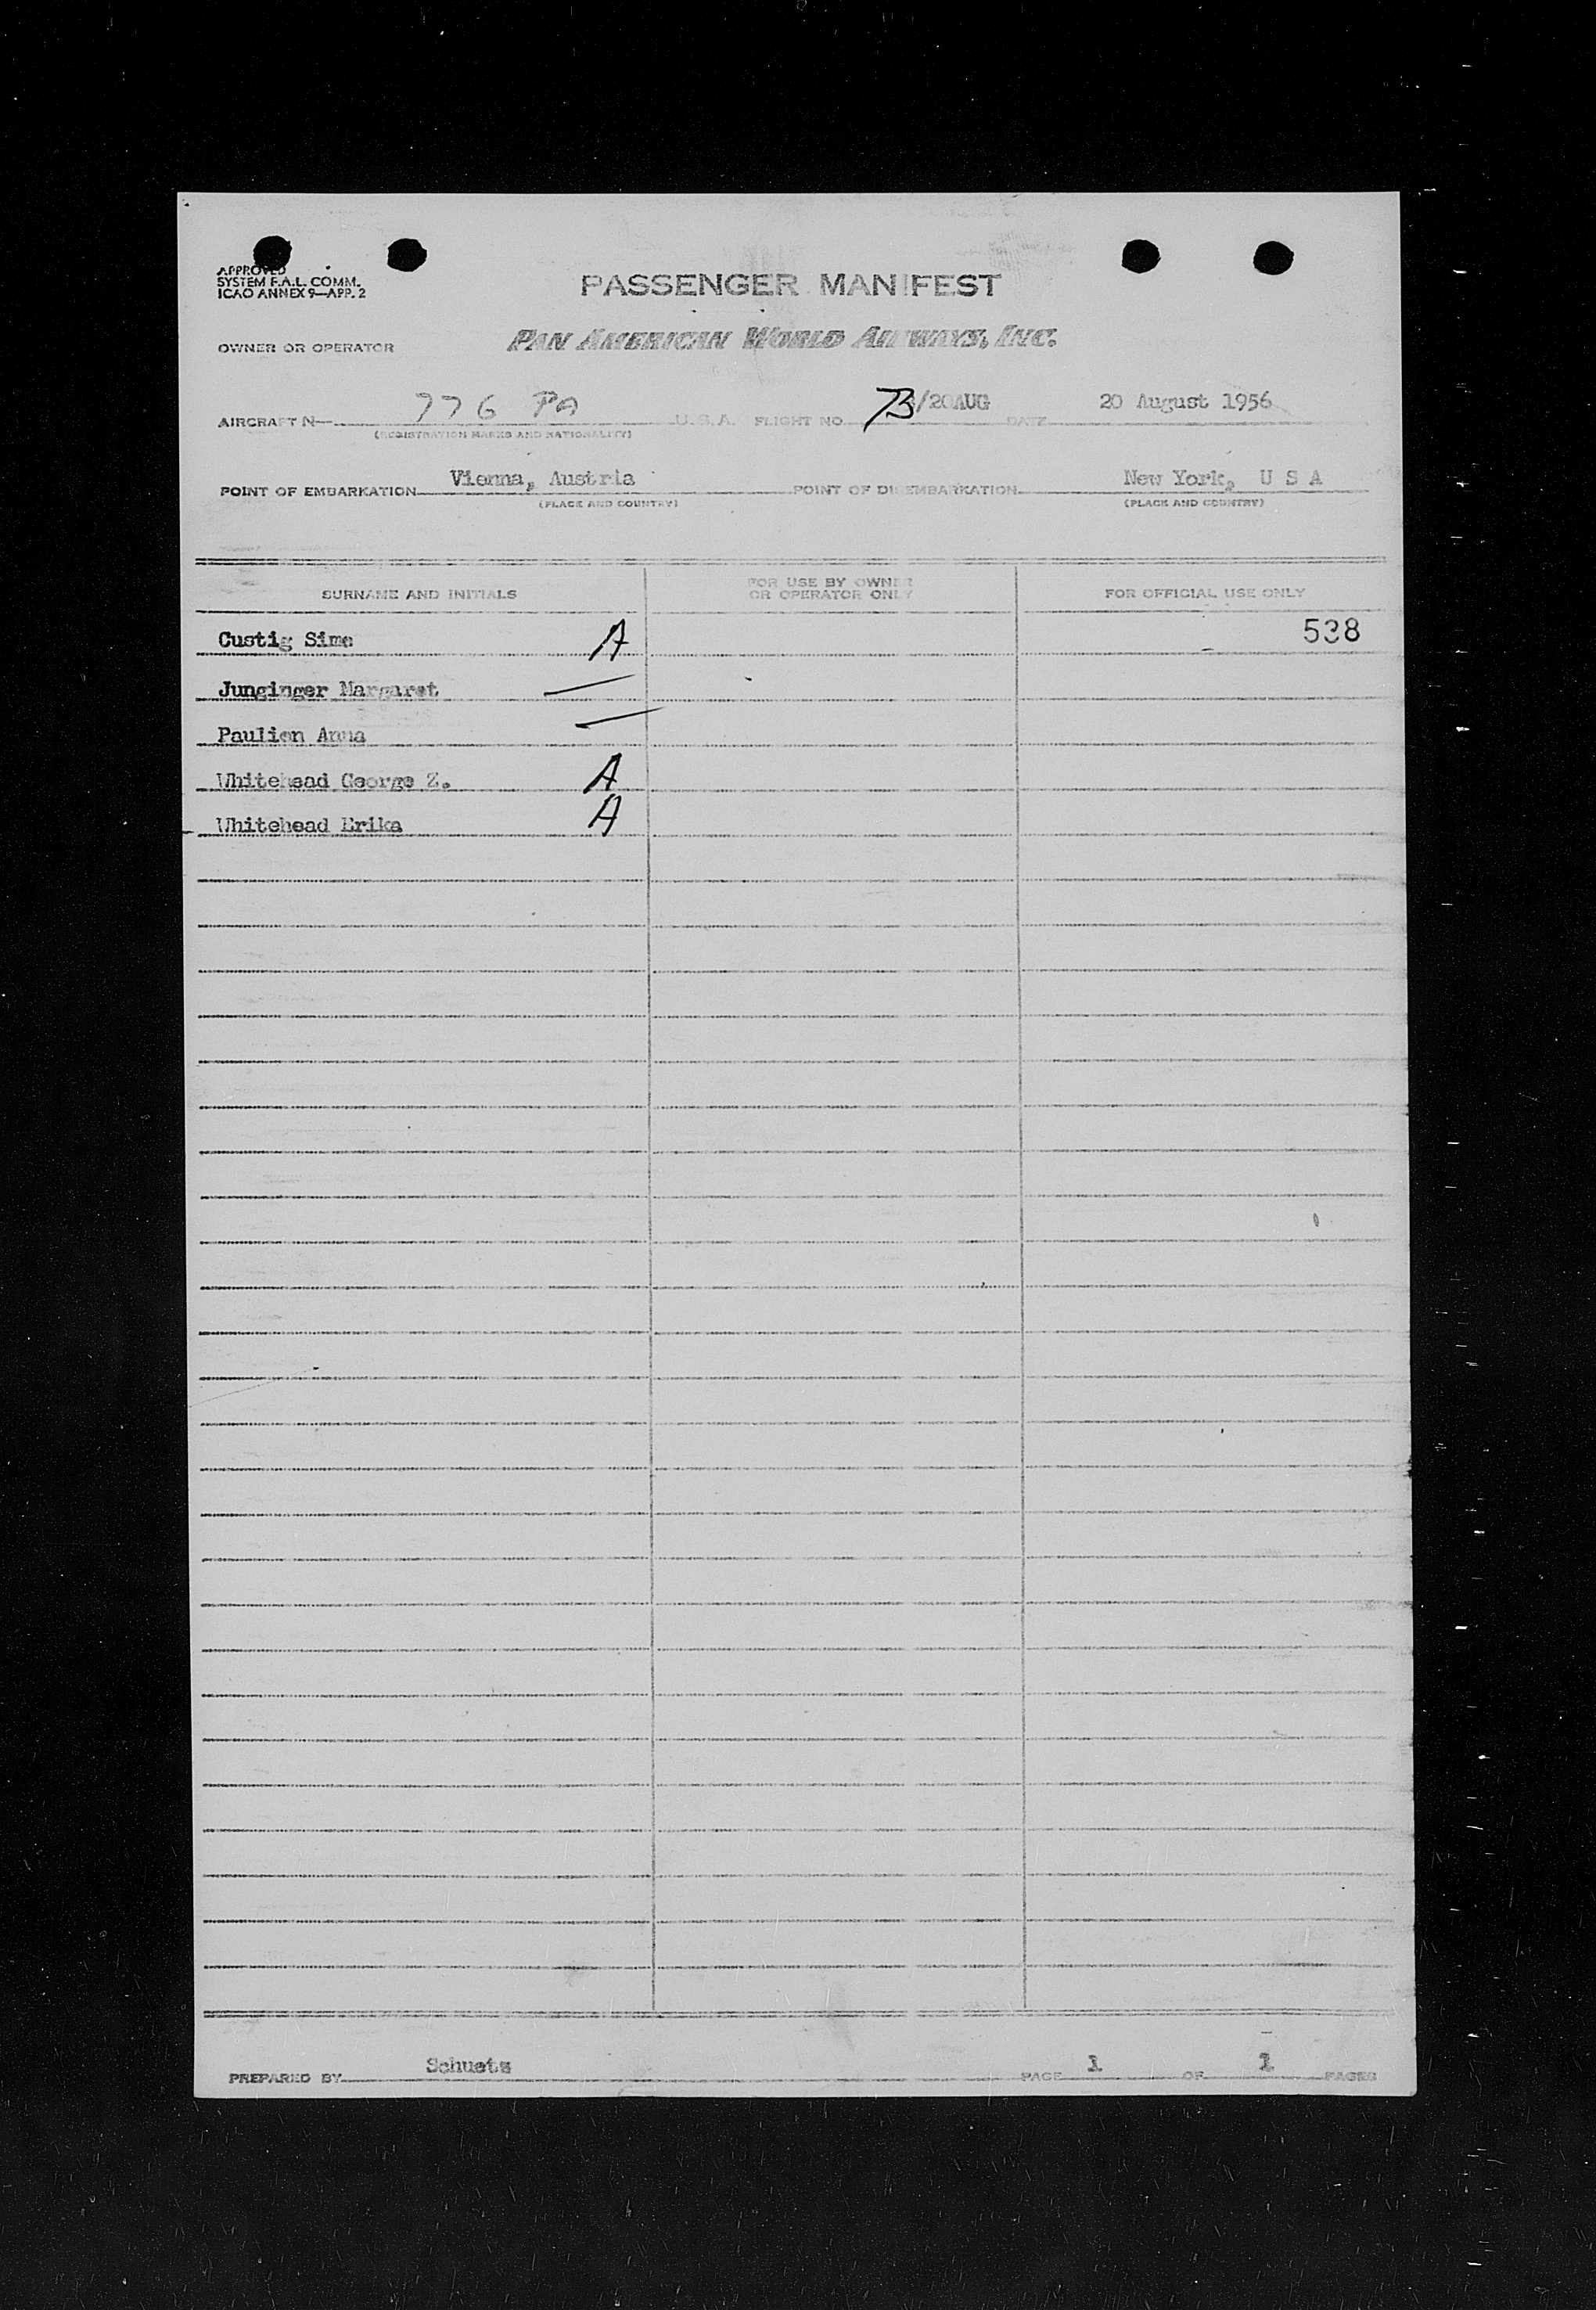 APPROVED
SYSTEM F.A.L. COMM.
ICAO ANNEX 9—APP. 2
PASSENGER MANIFEST
OWNER OR OPERATOR PAN AMERICAN WORLD AIRWAYS, INC.
AIRCRAFT N— 776 PA U.S.A. FLIGHT NO. 73/20AUG DATE 20 August 1956
(REGISTRATION MARKS AND NATIONALITY)
POINT OF EMBARKATION Vienna, Austria POINT OF DISEMBARKATION New York, U S A
(PLACE AND COUNTRY) (PLACE AND COUNTRY)
SURNAME AND INITIALS FOR USE BY OWNER OR OPERATOR ONLY FOR OFFICIAL USE ONLY
Custig Sime A 538
Junginger Margaret —
Paulien Anna —
Whitehead George Z. A
Whitehead Erika A
PREPARED BY Schuets PAGE 1 OF 1 PAGES